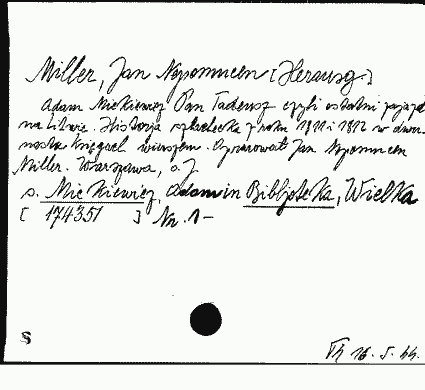 Miller, Jan Nepomucen [Herausg.]
Adam Mickiewicz Pan Tadeusz czyli ostatni zajazd
na Litwie. Historja szlachecka z roku 1811 i 1812 w dwu-
nastu księgach wierszem. Opracował Jan Nepomucen
Miller. Warszawa, o. J.
s. Mickiewicz, Adam in Bibljoteka, Wielka
[ 174351 ] Nr. 1-
S
Th 16. 5. 44.